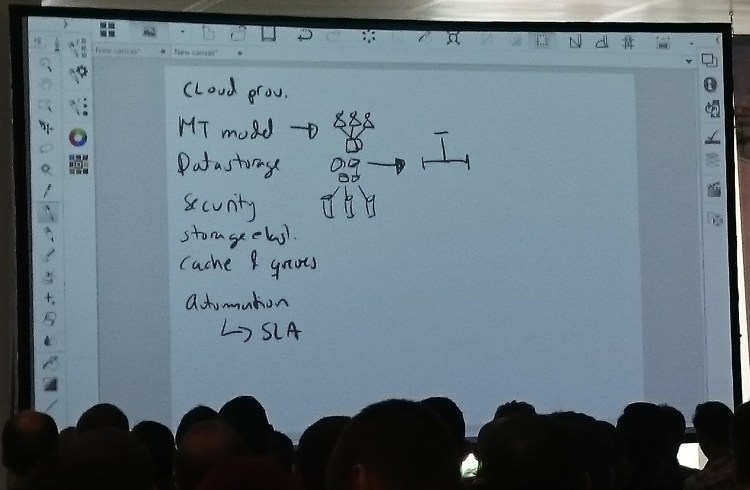 New canvas*
New canvas*
Cloud prov.
MT model
Datastorage
Security
storage elast.
Cache & queues
automation
SLA